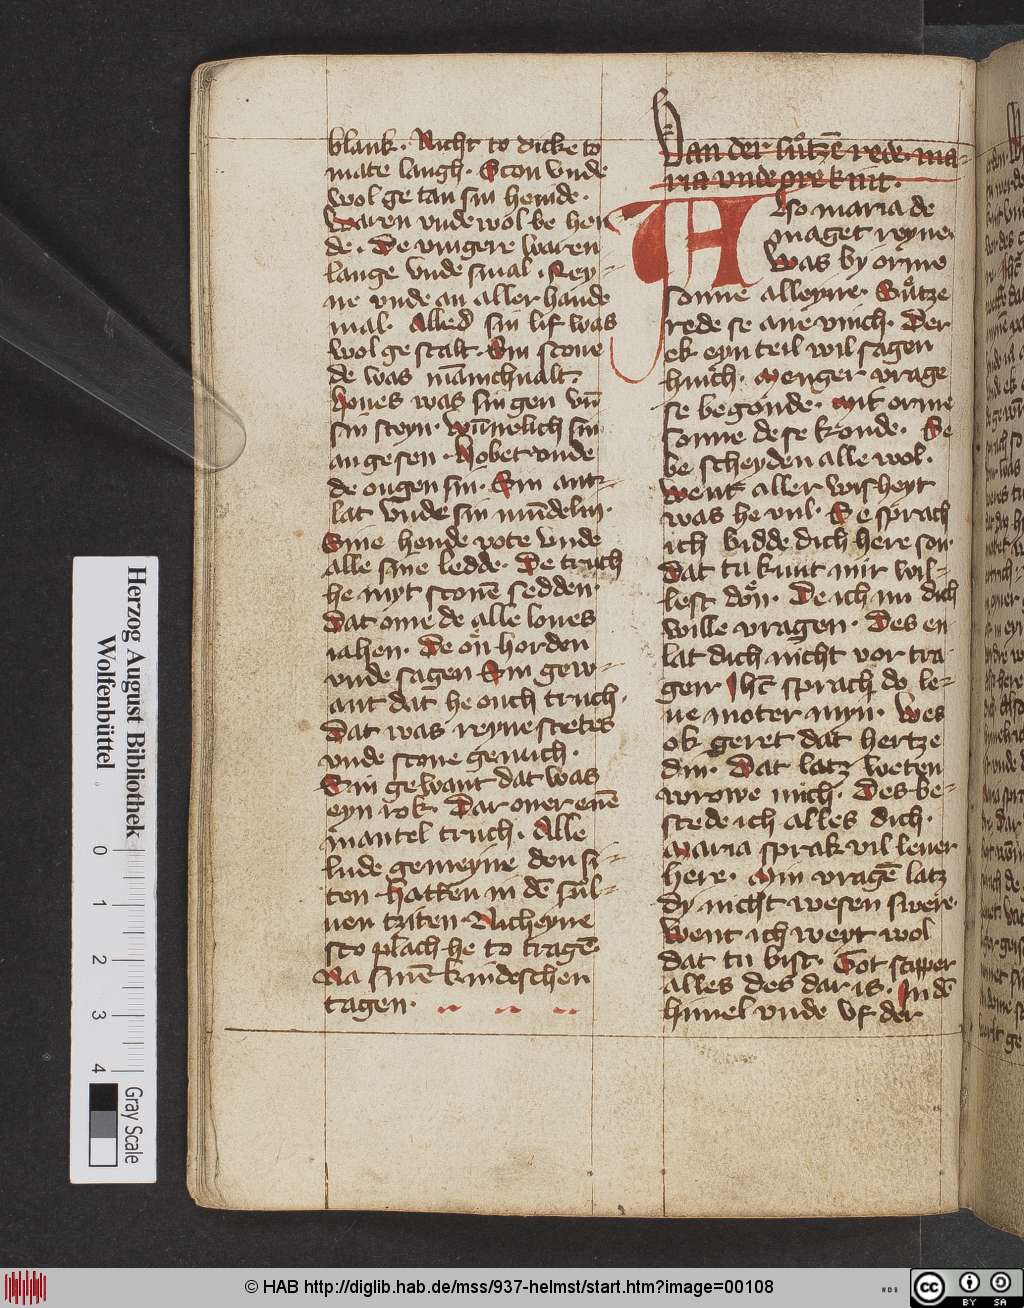 blank. Nicht to dicke to
mate langh. Scon vnde
wol ge tan sin hemde.
Waren vnde wol be hen
de. De vingere waren
lange vnde smal. Rey-
ne vnde an aller hande
mal. Alled sin lif was
wol ge stalt. Sin scone
de was mānichualt.
Loues was sin gen vū
sin steyn. wūnelich sin
an gesen. Hobet vnde
de ougen sin. Sin antz-
lat vnde sin mūdelin.
Sine hende vote vnde
alle sine ledde. De truch
he myt sconē sedden.
Dat ome de alle loues
iahen. De on horden
vnde sagen Sin gew-
ant dat he ouch truch.
Dat was reyne stetes
vnde scone genuch.
Sin gewant dat was
eyn rok. Dar ouer enē
mantel truch. Alle
lude gemeyne den si-
ten hatten in dē sul-
uen tziten. Nicheyne
sto plach he to tragē
Na sinē kindeschen
tagen.
Van der sutzē rede. ma-
ria vnde ore kint.
Also maria de
maget reyne.
Was by orme
sonne alleyne. Sutze
rede se ane vinch. Der
ek eyn teil wil sagen
hinch. Menger vrage
se begonde. mit orme
sonne de se konde. Se
be scheyden alle wol.
Went aller wisheyt
was he vul. Se sprach
ich bidde dich here son.
Dat tu kunt mir wil-
lest don. De ich nu dich
wille vragen. Des en
lat dich nicht vor tra-
gen Ihc sprach do le-
ue moter myn. Wes
ok geret dat hertze
din. Dat latz weten
vrowe mich. Des be-
stede ich alles dich.
Maria sprak vil leuer
here. Min vragē latz
dy nicht wesen swere.
Went ich weyt wol
dat tu bist. Got scipper
alles des dar is. In dē
himel vnde vf der
Herzog August Bibliothek
Wolfenbüttel
0 1 2 3 4
Gray Scale
© HAB http://diglib.hab.de/mss/937-helmst/start.htm?image=00108
WDB
cc BY SA